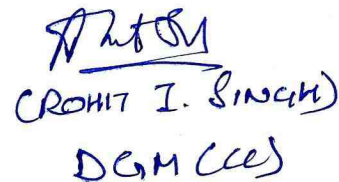 (ROHIT I. SINGH)
DGM (CC)